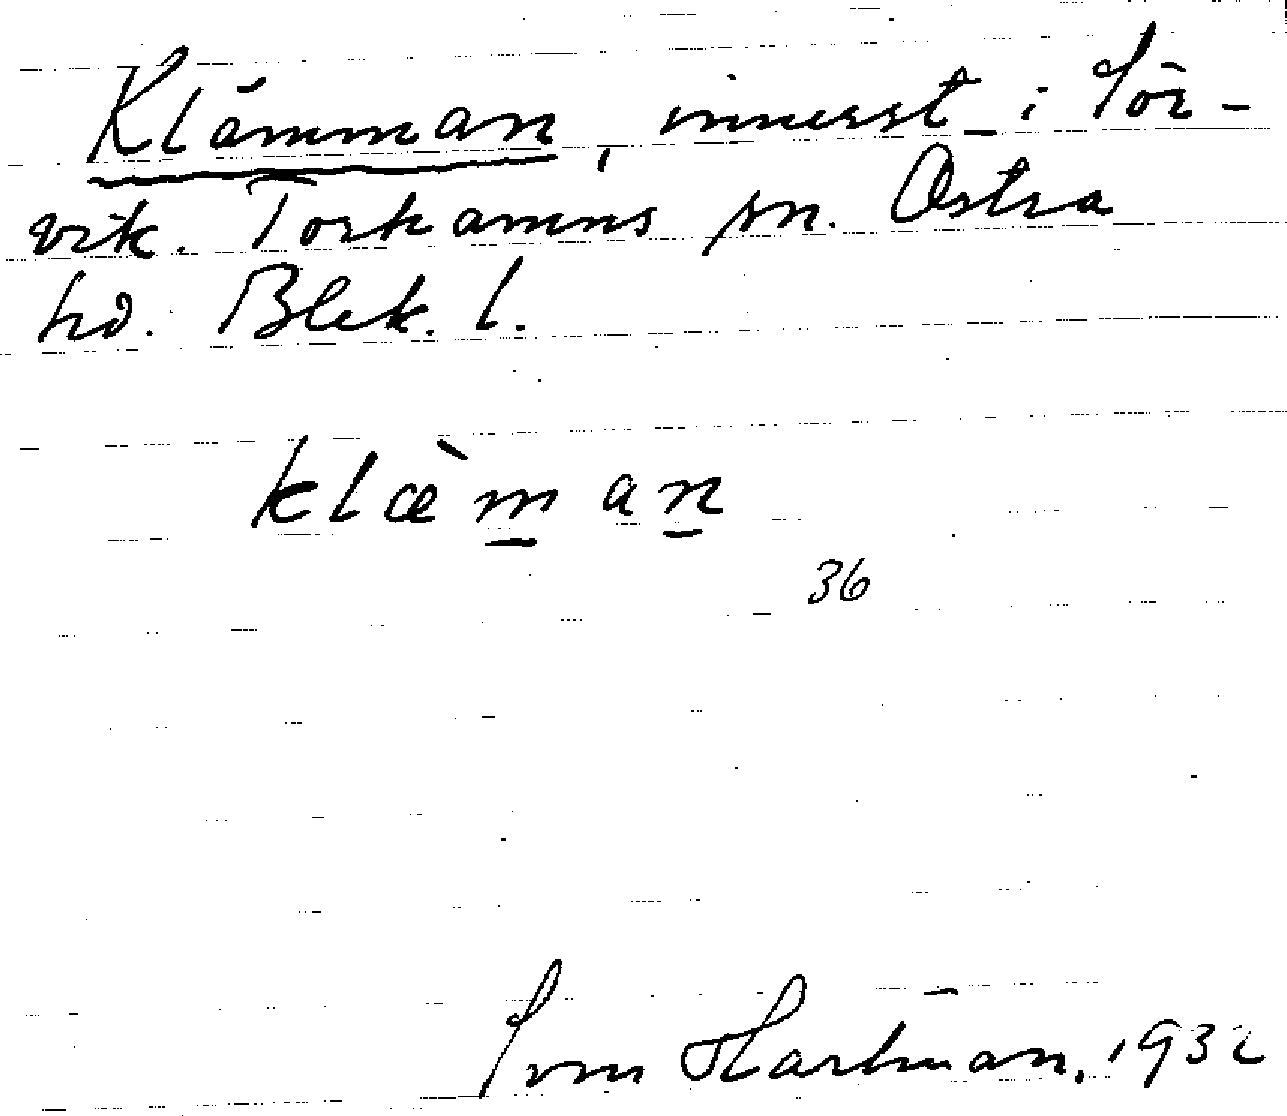 Klämman, innerst i Sör-
vik. Torhamns sn. Östra
hd. Blek. l.
klæ̀m̲an̲
36
Sven Hartman, 1932